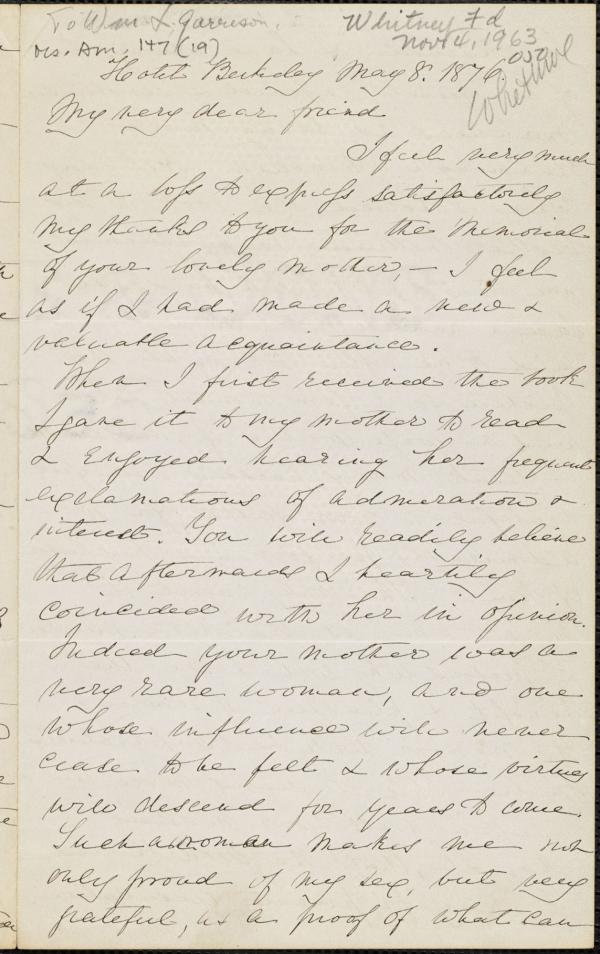 To Wm L. Garrison.
Ms. Am. 147 (19)
Whitney Fd
Nov 4, 1963
Hotel Berkeley May 8. 1876.
My very dear friend
I feel very much
at a loss to express satisfactorily
my thanks to you for the Memorial
of your lovely Mother, – I feel
as if I had made a new &
valuable acquaintance.
When I first received the book
I gave it to my mother to read
& enjoyed hearing her frequent
exclamations of admiration &
interest. You will readily believe
that afterwards I heartily
coincided with her in opinion.
Indeed your mother was a
very rare woman, and one
whose influence will never
cease to be felt & whose virtues
will descend for years to come.
Such a woman makes me not
only proud of my sex, but very
grateful, as a proof of what can